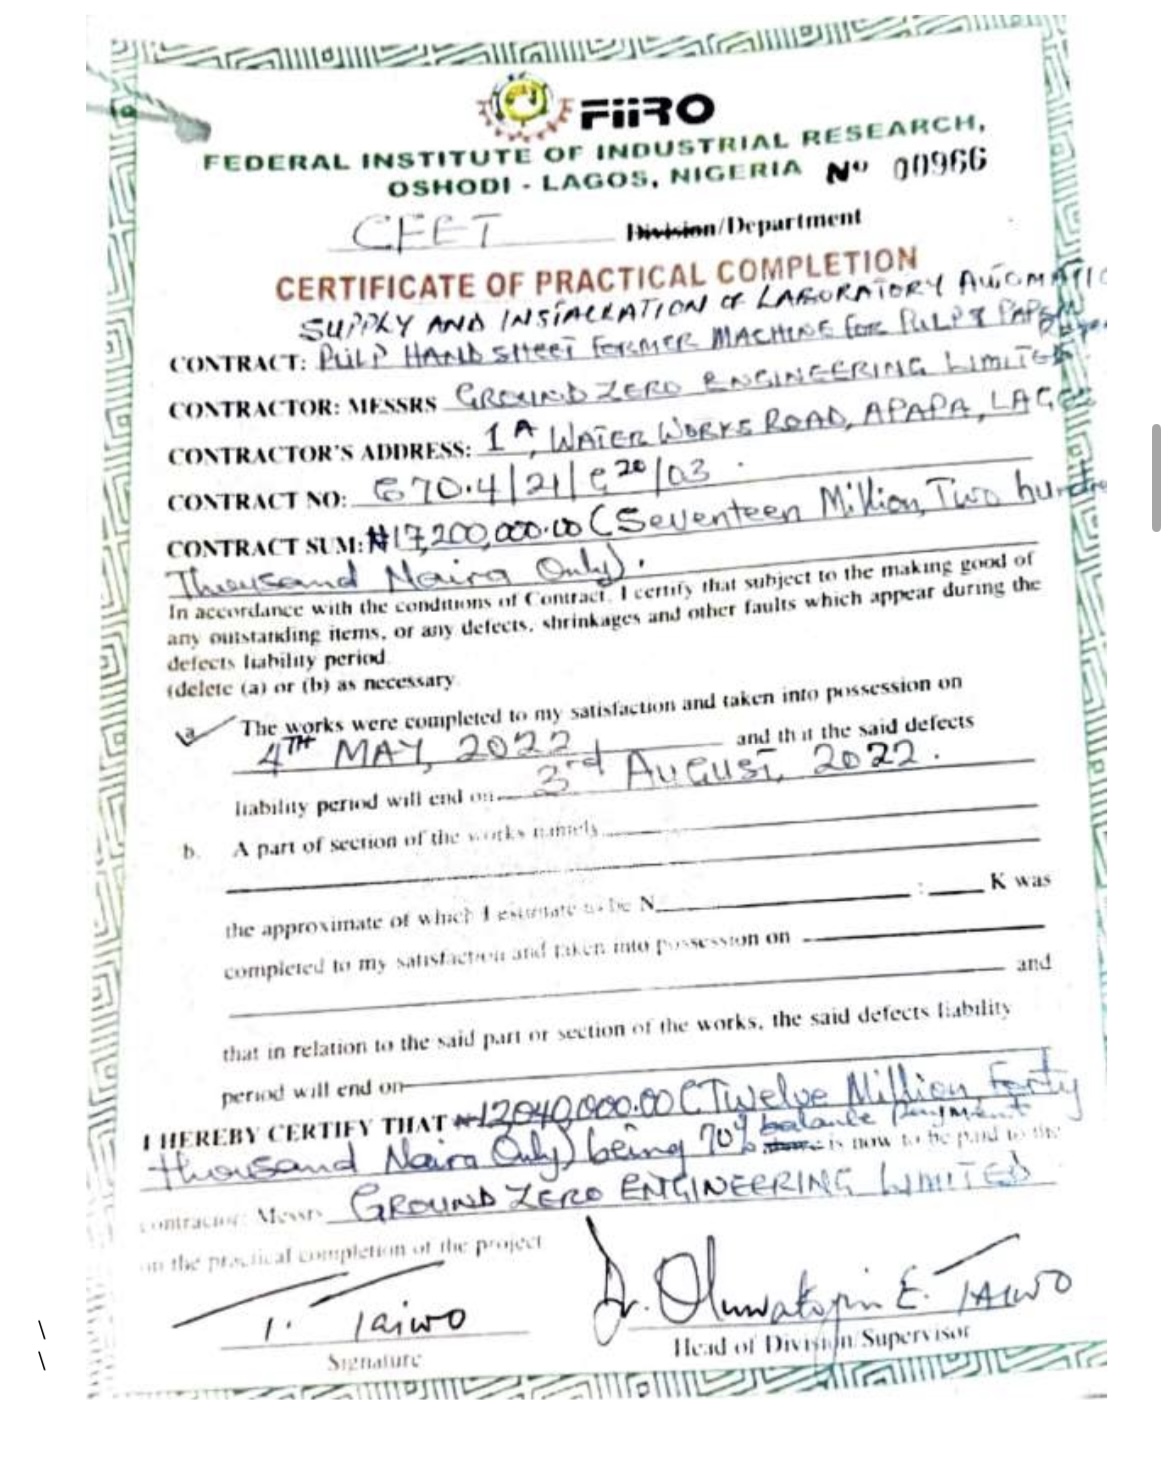 FiiRO
FEDERAL INSTITUTE OF INDUSTRIAL RESEARCH,
OSHODI - LAGOS, NIGERIA No 00966
CFET Division/Department
CERTIFICATE OF PRACTICAL COMPLETION
SUPPLY AND INSTALLATION OF LABORATORY AUTOMATIC
CONTRACT: PULP HAND SHEET FORMER MACHINE FOR PULP & PAPER
CONTRACTOR: MESSRS GROUND ZERO ENGINEERING LIMITED
CONTRACTOR'S ADDRESS: 1A, WATER WORKS ROAD, APAPA, LAGOS
CONTRACT NO: 70.4/21/ 20/03
CONTRACT SUM: ₦17,200,000.00 (Seventeen Million, Two hundred
Thousand Naira Only).
In accordance with the conditions of Contract. I certify that subject to the making good of
any outstanding items, or any defects, shrinkages and other faults which appear during the
defects liability period.
(delete (a) or (b) as necessary
a The works were completed to my satisfaction and taken into possession on
4TH MAY, 2022 and that the said defects
liability period will end on 3rd AUGUST, 2022.
b. A part of section of the works namely
the approximate of which I estimate to be N : K was
completed to my satisfaction and taken into possession on
and
that in relation to the said part or section of the works, the said defects liability
period will end on
I HEREBY CERTIFY THAT ₦12040,000.00 (Twelve Million, Forty
thousand Naira Only) being 70% balance payment is now to be paid to the
contractor: Messrs GROUND ZERO ENGINEERING LIMITED
on the practical completion of the project
T. Taiwo Dr. Oluwatoyin E. TAIWO
Signature Head of Division/Supervisor
\
\